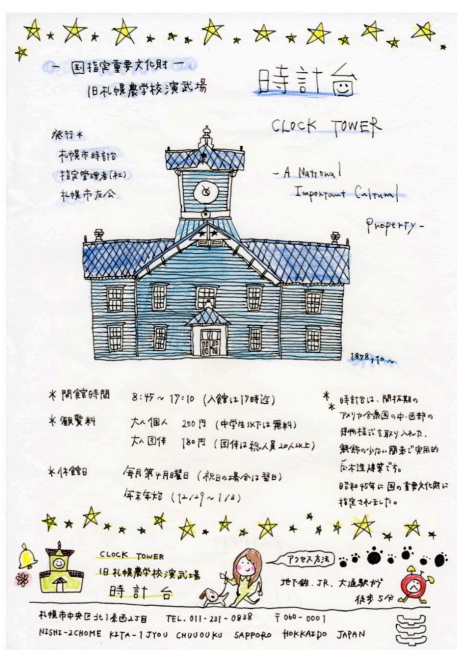 － 国指定重要文化財 －
旧札幌農学校演武場
時計台
CLOCK TOWER
－A National
Important Cultural
Property－
発行＊
札幌市時計台
指定管理者(社)
札幌市友公
1878,
＊ 開館時間 8:45 ～ 17:10 (入館は17時迄)
＊ 観覧料 大人個人 200円 (中学生以下は無料)
大人団体 180円 (団体は総人員20人以上)
＊ 休館日 毎月第4月曜日 (祝日の場合は翌日)
年末年始 (12/29 ～ 1/3)
＊ 時計台は、開拓期の
アメリカ合衆国の中・西部の
建物様式を取り入れた、
装飾の少ない簡素で実用的
な木造建築です。
昭和45年に国の重要文化財に
指定されました。
CLOCK TOWER
旧札幌農学校演武場
時計台
アクセス方法
地下鉄、JR、大通駅から
徒歩5分
札幌市中央区北1条西2丁目 TEL. 011-231-0838 〒060-0001
NISHI-2CHOME KITA-1JYOU CHUUOUKU SAPPORO HOKKAIDO JAPAN